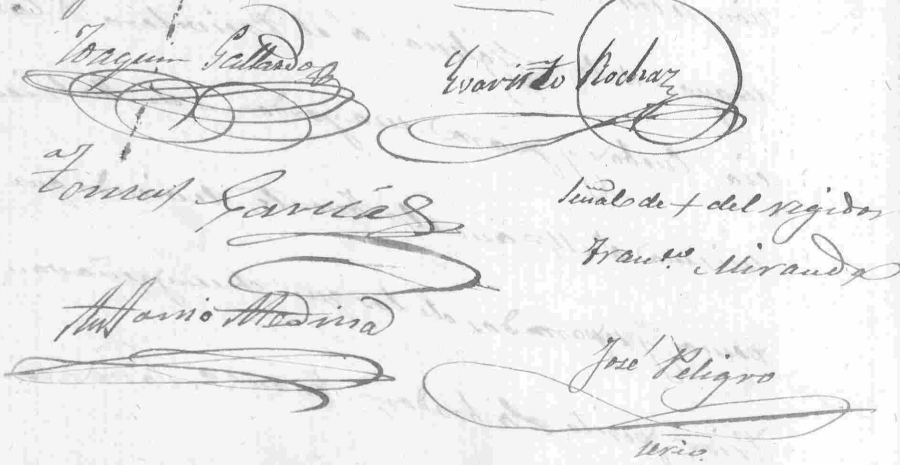 Joaquin Gallardo
Evaristo Rochaz
Tomas Garcia
Señal de + del regidor
Franco. Miranda
Antonio Medina
José Peligro
Srio.